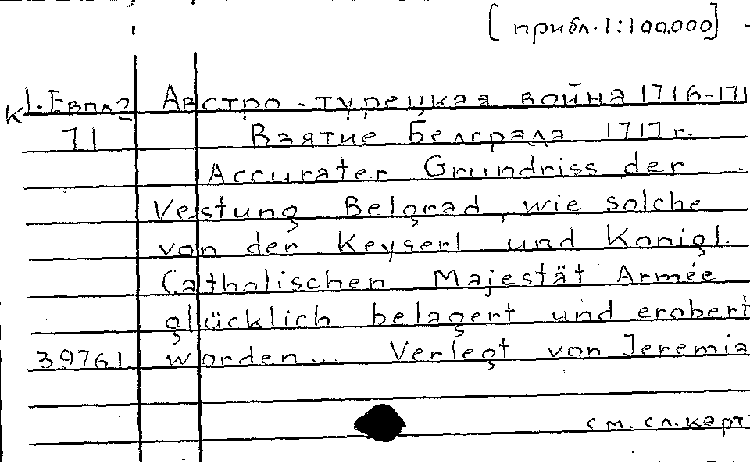 [прибл. 1:100.000]
К 1. Евпл2 Австро-турецкая война 1716-171
71 Взятие Белграда 1717 г.
Accurater Grundriss der
Vestung Belgrad, wie solche
von der Keyserl und Konigl.
Catholischen Majestät Armée
glücklich belagert und erobert
39761 worden... Verlegt von Jeremia
см. сл. карт